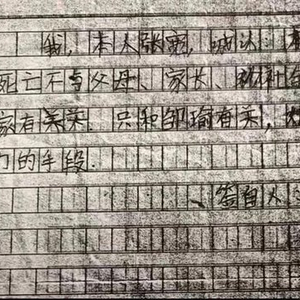 我,本人张 ,城认
死亡不与父母、家长、
家有关系 只和邹瑜有关,
门的手段.
签自人